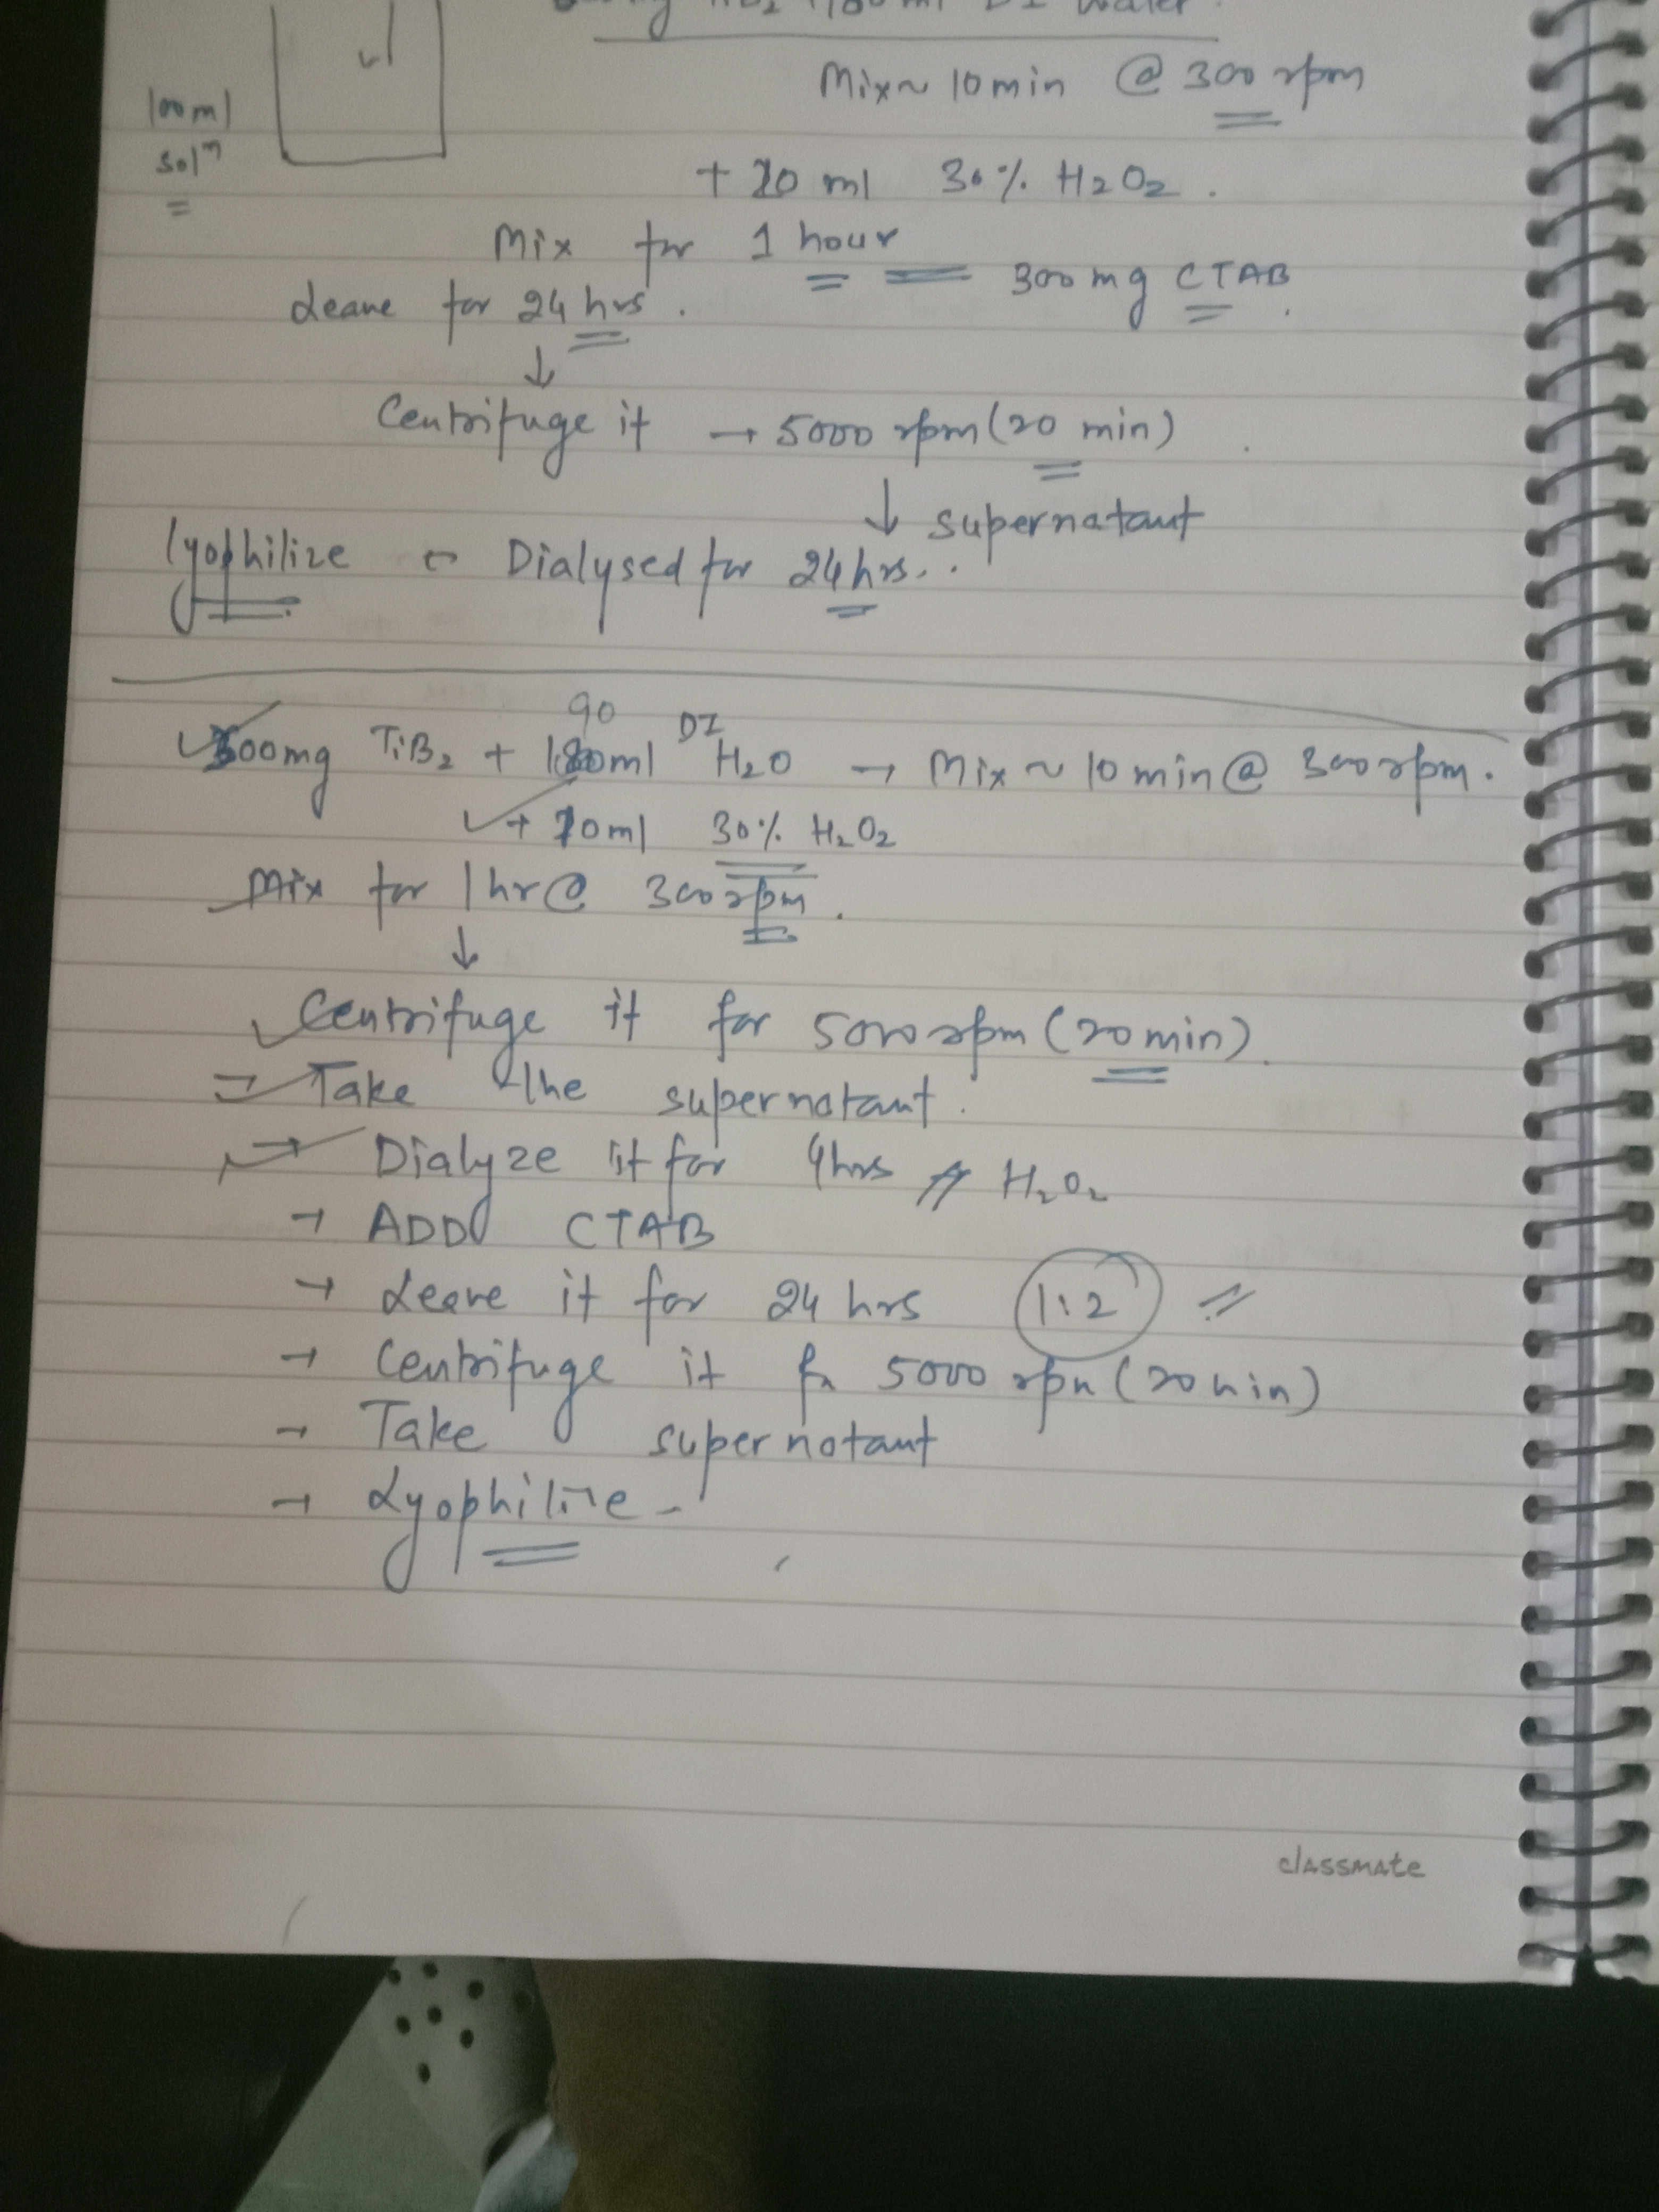 DI water.
Mix ~ 10 min @ 300 rpm
100 ml
solⁿ
+ 10 ml 30% H2O2.
Mix for 1 hour
300 mg CTAB.
Leave for 24 hrs.
↓
Centrifuge it → 5000 rpm (20 min)
↓ supernatant
lyophilize ← Dialysed for 24 hrs..
90
mg TiB2 + ml DI H2O → Mix ~ 10 min @ 300 rpm.
+ 10 ml 30% H2O2
Mix for 1 hr @ 300 rpm.
↓
Centrifuge it for 5000 rpm (20 min).
Take the supernatant.
→ Dialyze it for 4 hrs H2O2
→ ADD CTAB
→ Leave it for 24 hrs 1:2
→ Centrifuge it fr 5000 rpm (20 min)
→ Take supernatant
→ Lyophilize -
classmate